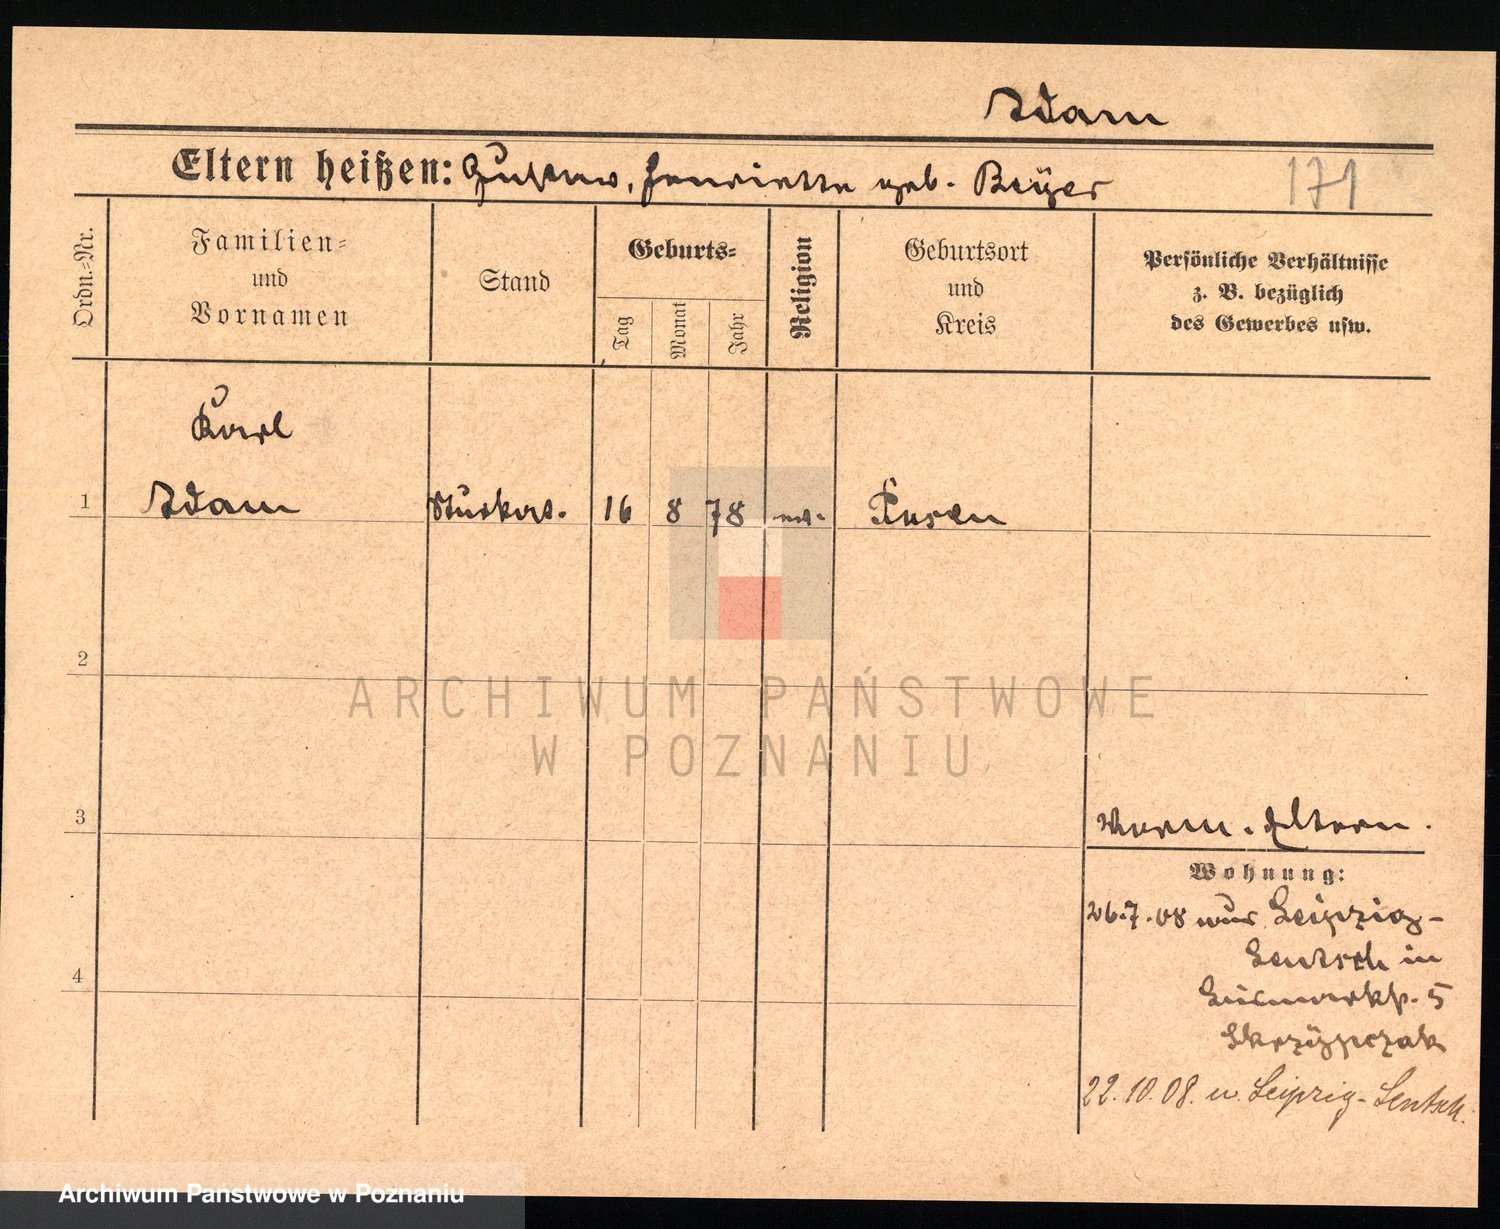 Adam
Eltern heißen: Gustav, Henriette geb. Beyer
171
Ordn.-Nr.
Familien-
und
Vornamen
Stand
Geburts-
Tag
Monat
Jahr
Religion
Geburtsort
und
Kreis
Persönliche Verhältnisse
z. B. bezüglich
des Gewerbes usw.
Karl
1 Adam 16 8 78 Posen
2
ARCHIWUM PAŃSTWOWE
W POZNANIU
3
Eltern.
Wohnung:
26.7.08 aus Leipzig-
Leutzsch in
5
Skrzypczak
4
22.10.08. n. Leipzig-Leutzsch.
Archiwum Państwowe w Poznaniu